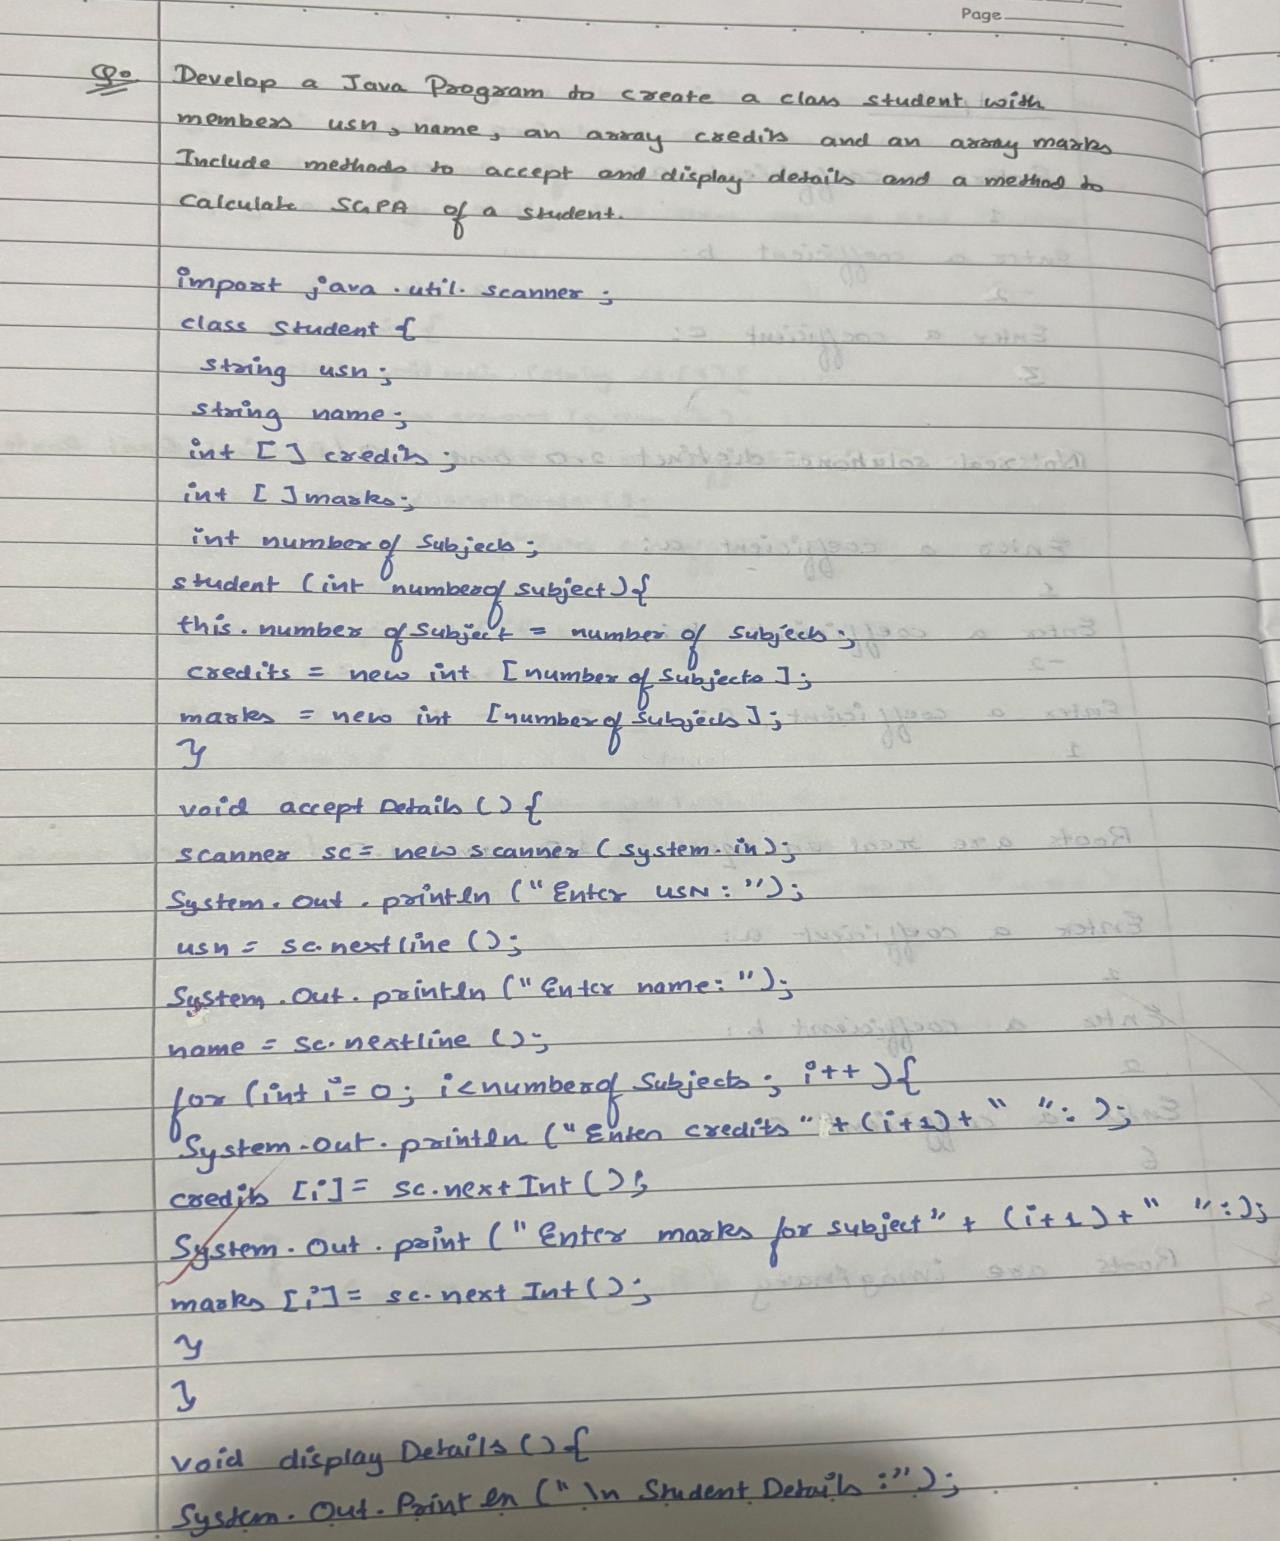 Page
Q. Develop a Java Program to create a class student with
members usn, name, an array credits and an array marks
Include methods to accept and display details and a method to
Calculate SGPA of a student.
import java.util.scanner;
class student {
string usn;
string name;
int [] credits;
int [] marks;
int number of Subjects;
student (int number of subject) {
this. number of Subject = number of subjects;
credits = new int [number of Subjects];
marks = new int [number of Subjects];
}
void accept Details () {
scanner sc = new scanner (system.in);
System.out.println ("Enter USN: ");
usn = sc.nextline ();
System.Out.println ("Enter name: ");
name = sc.nextline ();
for (int i=0; i<number of Subjects; i++) {
System.out.println ("Enter credits" + (i+1)+ " ": );
credits [i] = sc.next Int ();
System.Out.print ("Enter marks for subject" + (i+1)+" ":);
marks [i] = sc.next Int ();
}
}
void display Details () {
System.Out.Print en ("\n Student Details:");